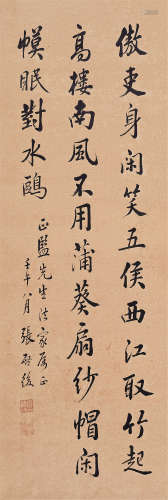 傲吏身閑笑五侯西江取竹起
高樓南風不用蒲葵扇紗帽閑
幙眠對水鷗
正監先生法家屬正
壬午八月張啓後